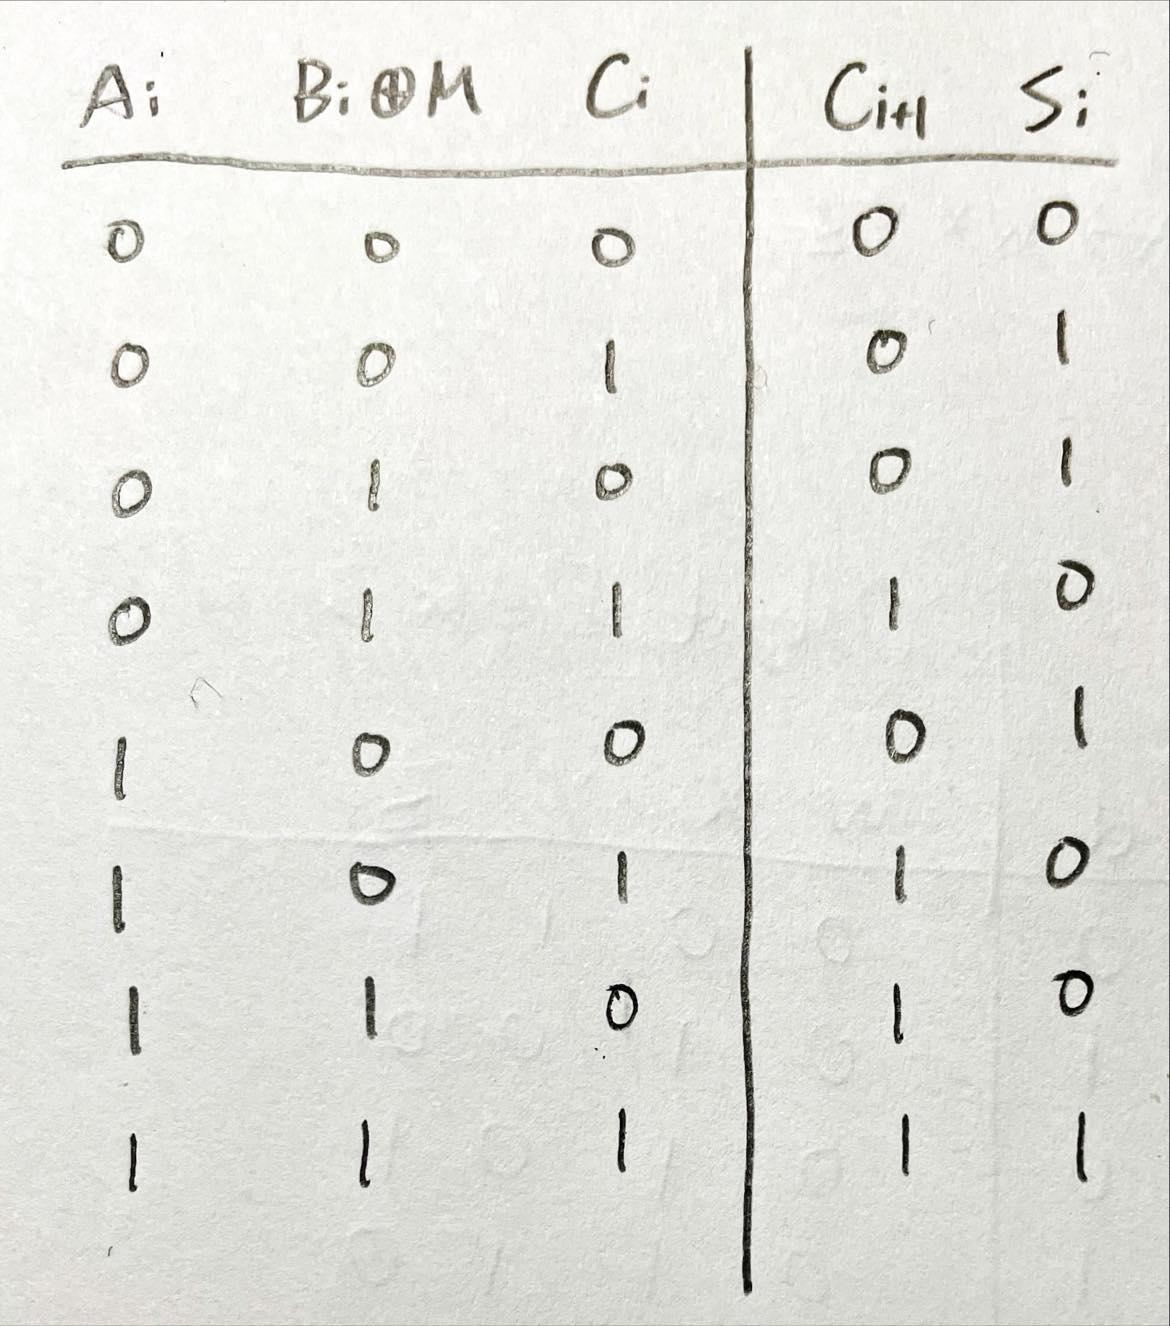 Ai Bi⊕M Ci Ci+1 Si
0 0 0 0 0
0 0 1 0 1
0 1 0 0 1
0 1 1 1 0
1 0 0 0 1
1 0 1 1 0
1 1 0 1 0
1 1 1 1 1